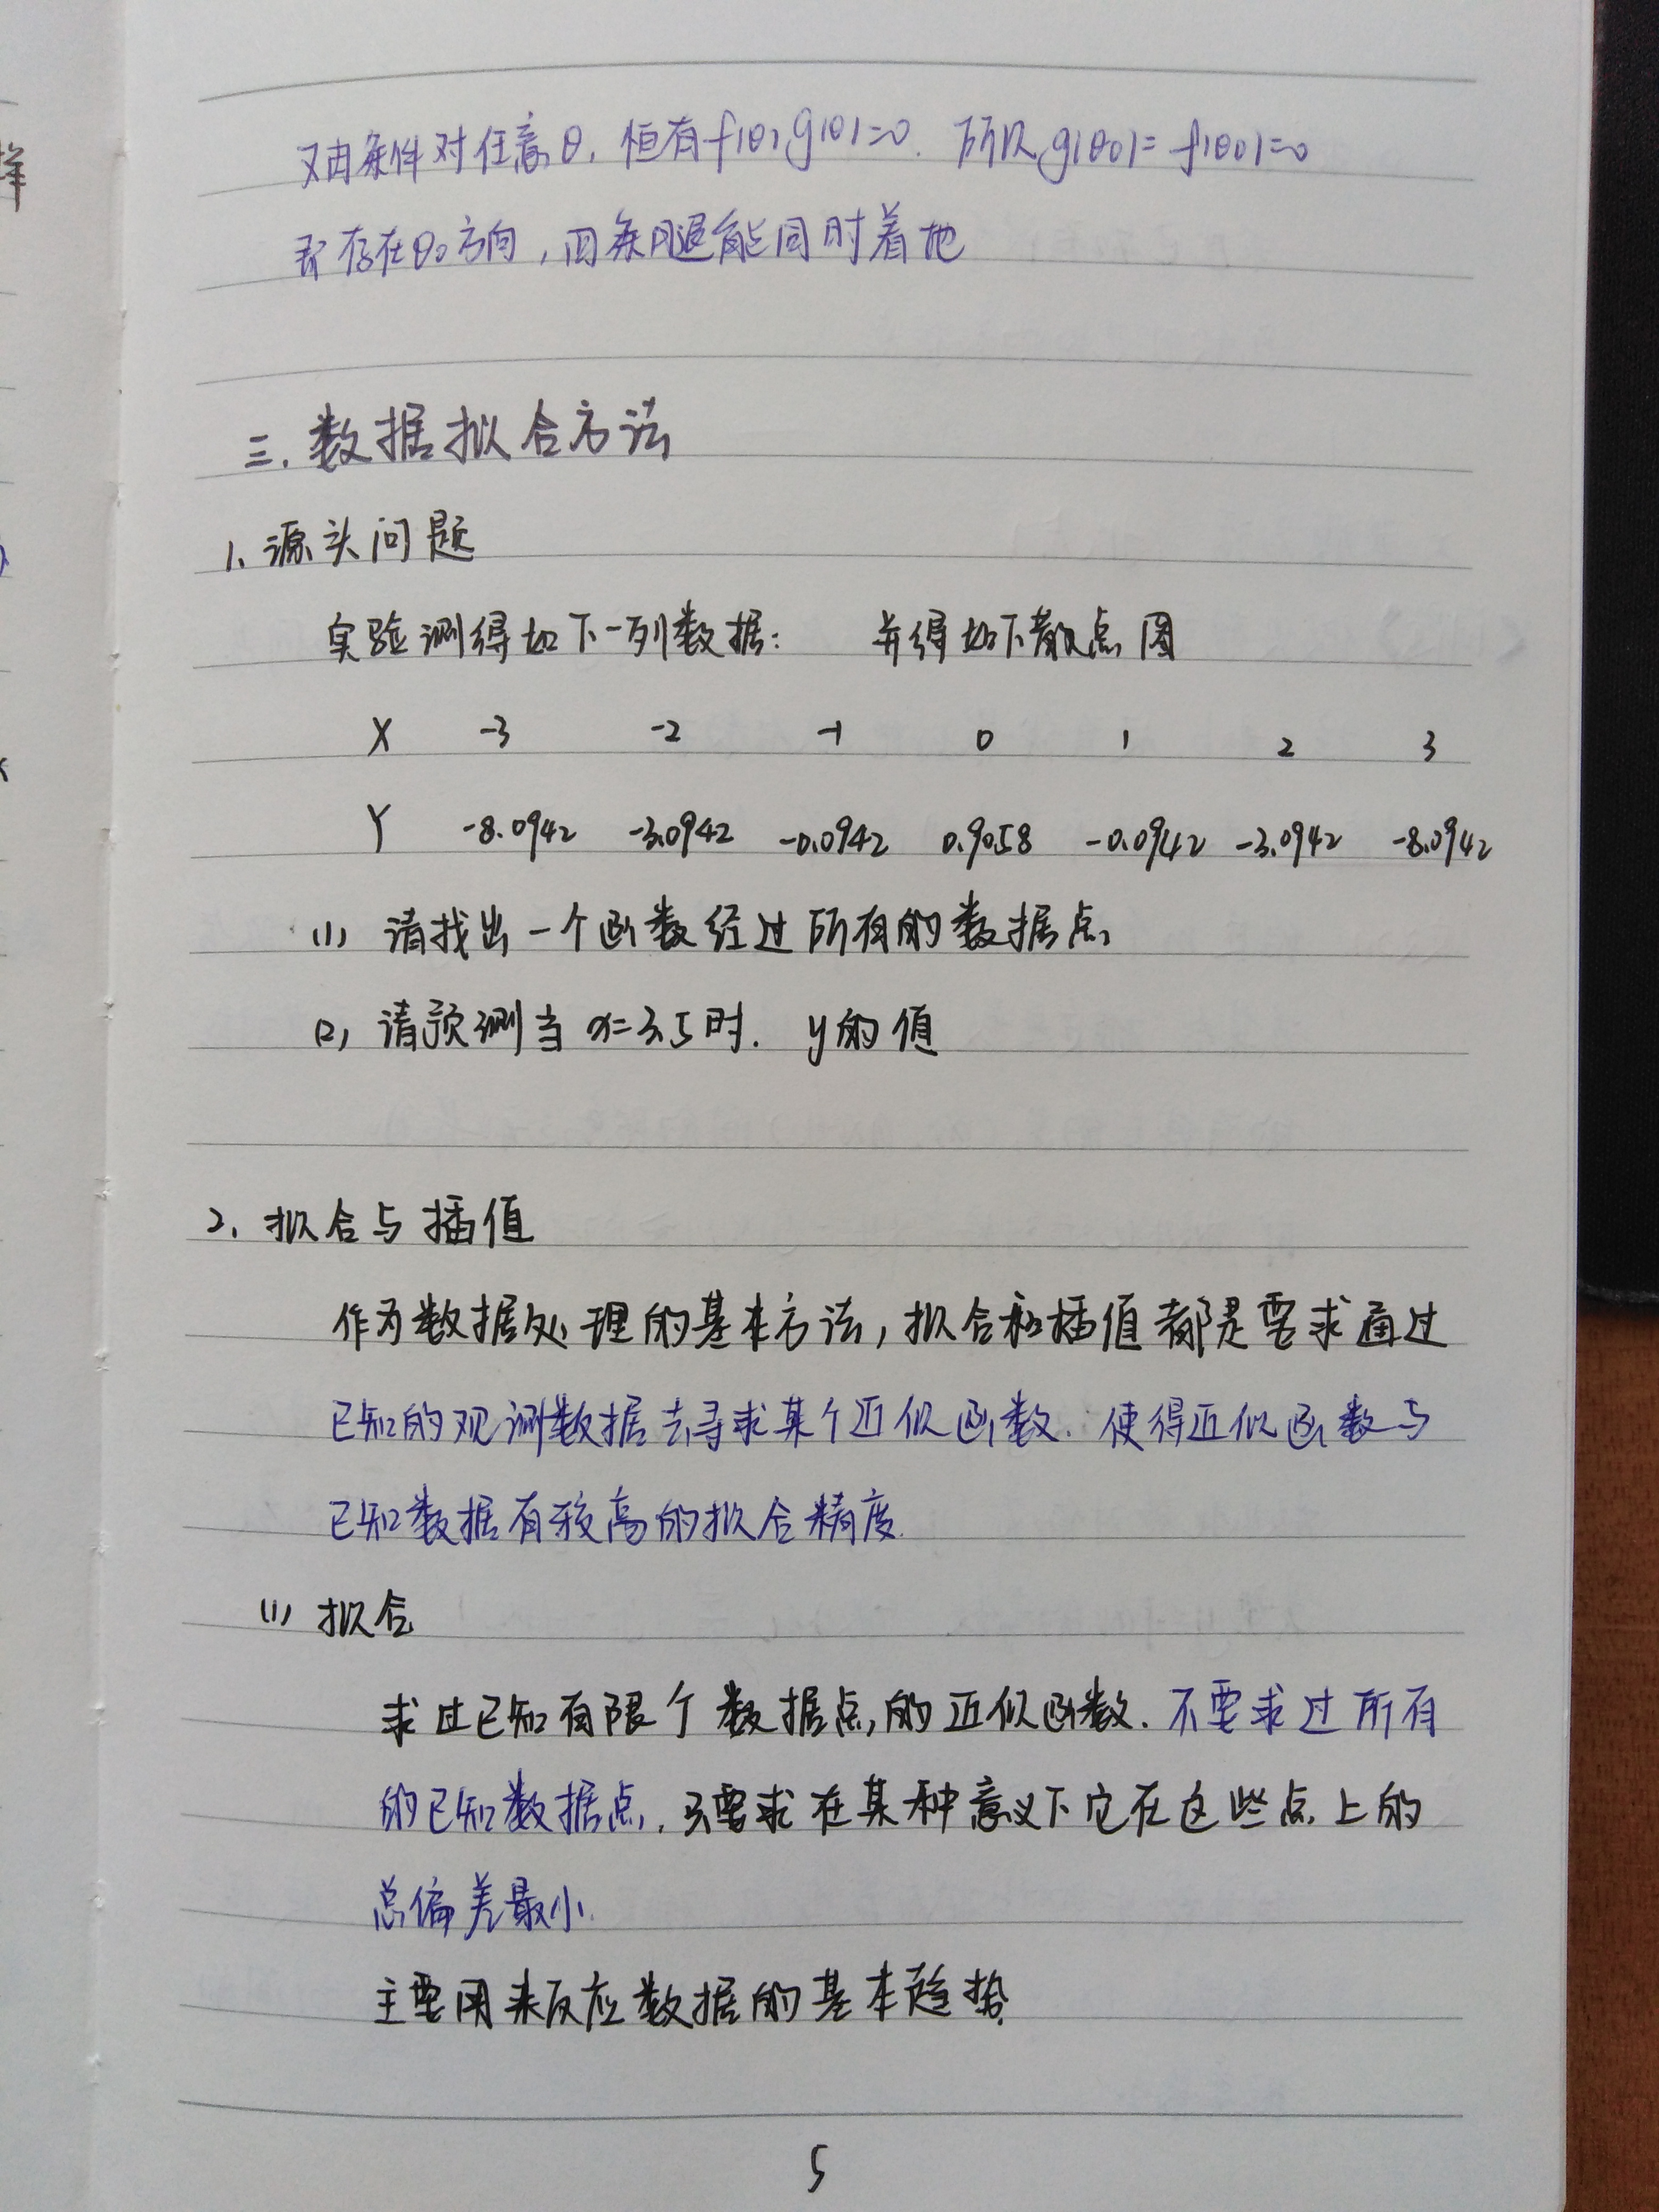 又由条件对任意θ, 恒有f(θ)g(θ)=0. 所以g(θ0)=f(θ0)=0
即存在θ0方向, 四条腿能同时着地
三. 数据拟合方法
1. 源头问题
实验测得如下一列数据: 并得如下散点图
X -3 -2 -1 0 1 2 3
Y -8.0942 -3.0942 -0.0942 0.9058 -0.0942 -3.0942 -8.0942
(1) 请找出一个函数经过所有的数据点
(2) 请预测当x=3.5时. y的值
2. 拟合与插值
作为数据处理的基本方法, 拟合和插值都是要求通过
已知的观测数据去寻求某个近似函数. 使得近似函数与
已知数据有较高的拟合精度.
(1) 拟合
求过已知有限个数据点的近似函数. 不要求过所有
的已知数据点, 只要求在某种意义下它在这些点上的
总偏差最小.
主要用来反应数据的基本趋势
5